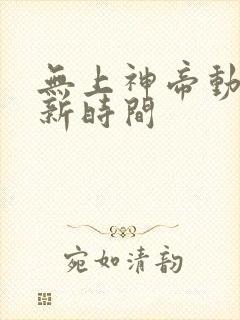 無上神帝動
新時間
宛如清韵